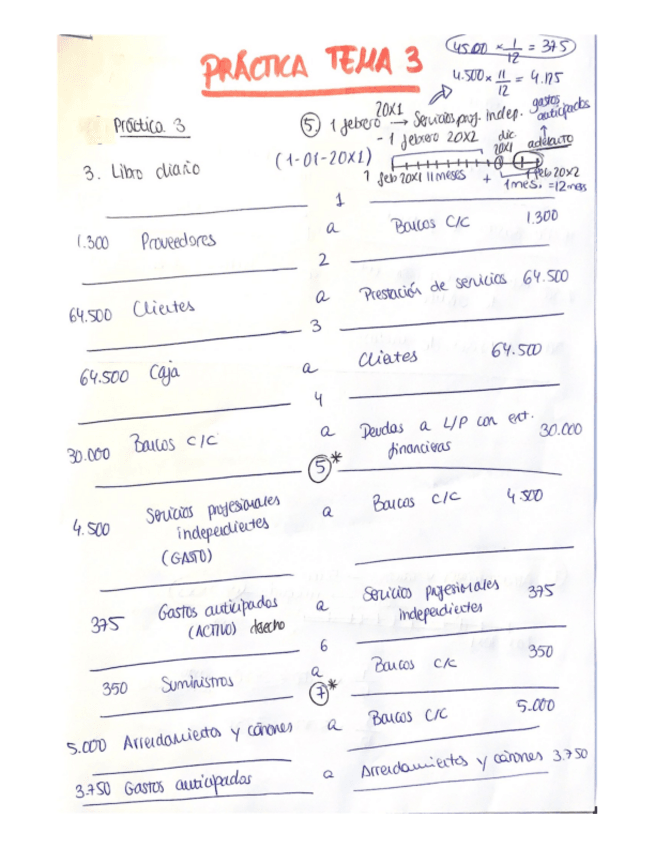 PRÁCTICA TEMA 3
4500 x 1/12 = 375
4.500 x 11/12 = 4.125
Práctica 3
⑤ 1 febrero 20X1 → Servicios prof. indep. gastos anticipados
- 1 febrero 20X2 dic 20X1 adelanto
3. Libro diario (1-01-20X1)
1 feb 20X1 11 meses + 1 mes. = 12 meses 1 feb 20X2
1
1.300 Proveedores a Bancos C/C 1.300
2
64.500 Clientes a Prestación de servicios 64.500
3
64.500 Caja a Clientes 64.500
4
30.000 Bancos C/C a Deudas a L/P con ent. financieras 30.000
⑤*
4.500 Servicios profesionales independientes (GASTO) a Bancos C/C 4.500
375 Gastos anticipados (ACTIVO) derecho a Servicios profesionales independientes 375
6
350 Suministros a Bancos C/C 350
⑦*
5.000 Arrendamientos y cánones a Bancos C/C 5.000
3.750 Gastos anticipados a Arrendamientos y cánones 3.750